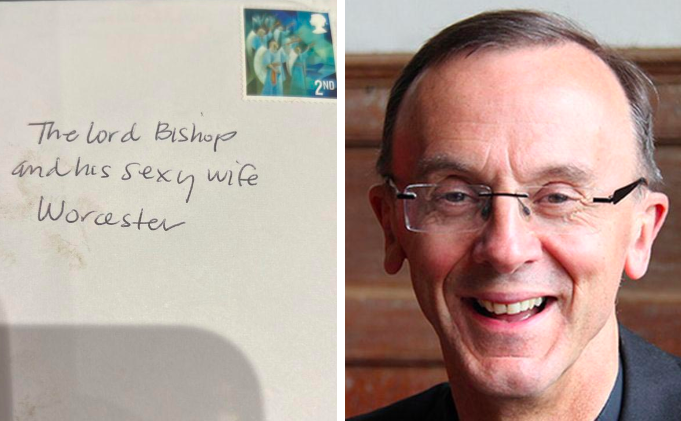 2ND
The Lord Bishop
and his sexy wife
Worcester